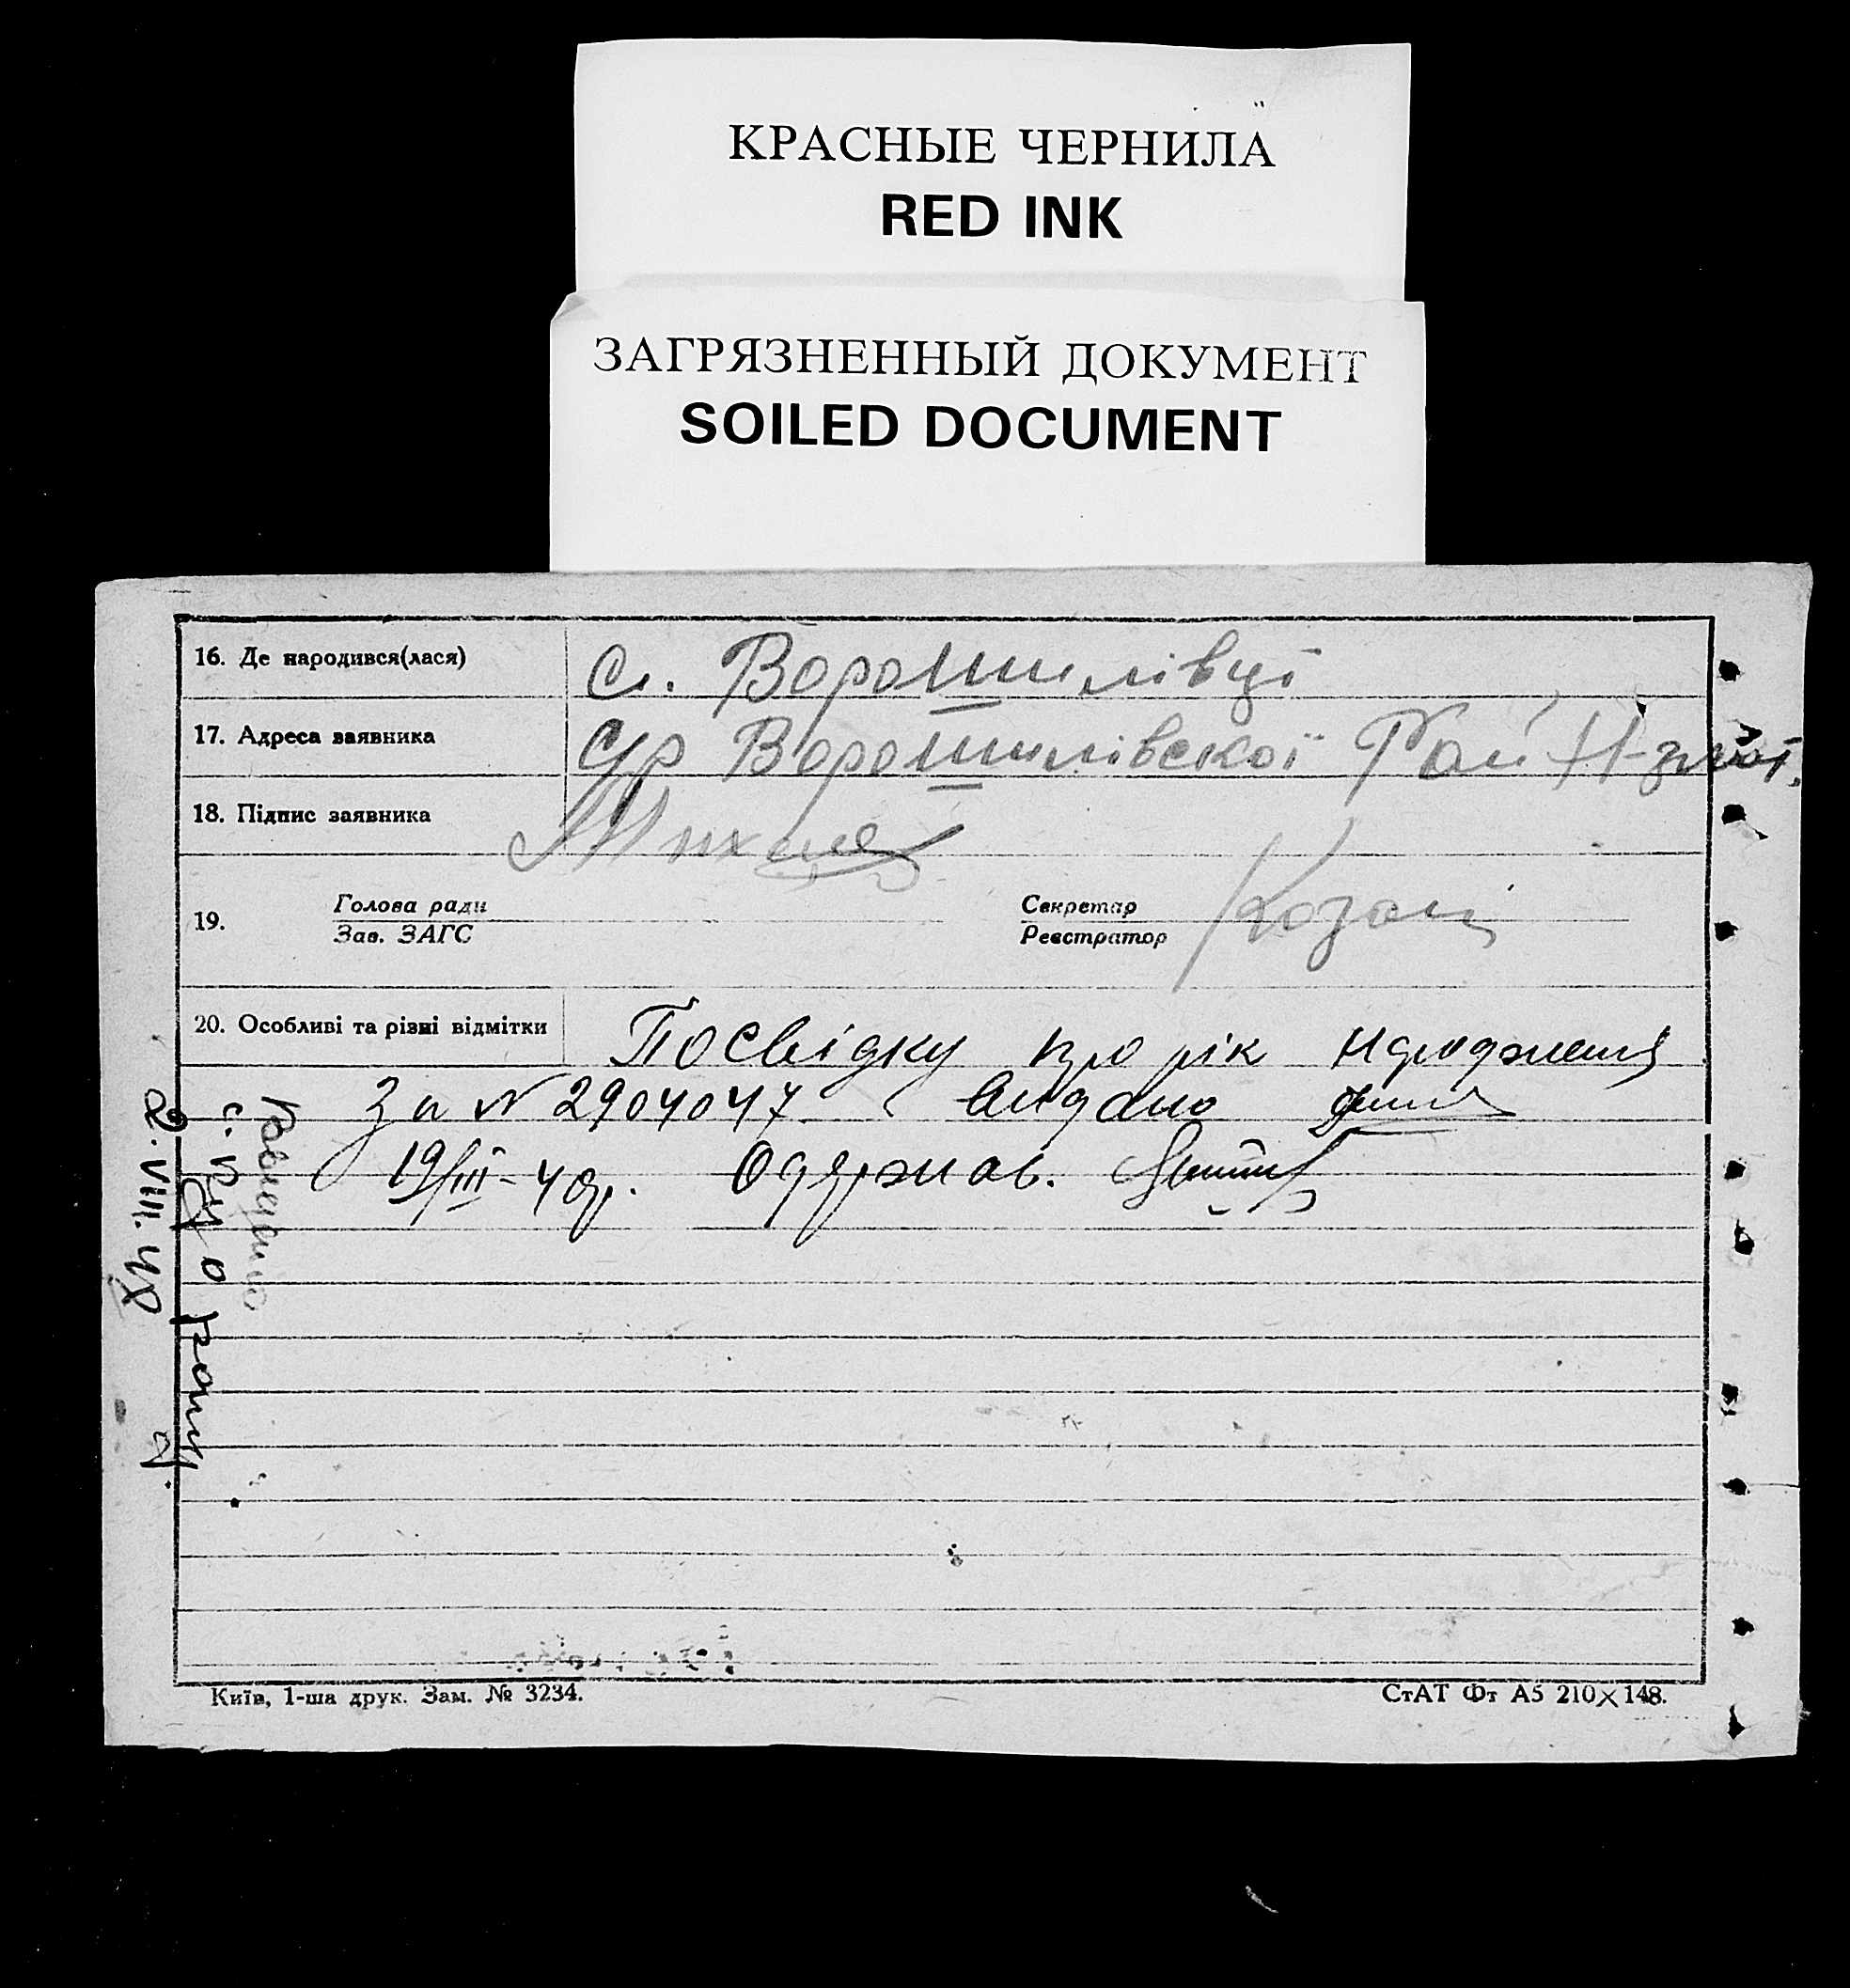 КРАСНЫЕ ЧЕРНИЛА
RED INK
ЗАГРЯЗНЕННЫЙ ДОКУМЕНТ
SOILED DOCUMENT
16. Де народився(лася) с. Ворошилівці
17. Адреса заявника с/р Ворошилівскої Рай
18. Підпис заявника
19. Голова ради Секретар
Зав. ЗАГС Реєстратор
20. Особливі та різні відмітки Посвідку про рік
За № 2904047 видано
19/III-40р. Одержав.
2.VIII.48
Київ, 1-ша друк. Зам. № 3234. СтАТ Фт А5 210×148.